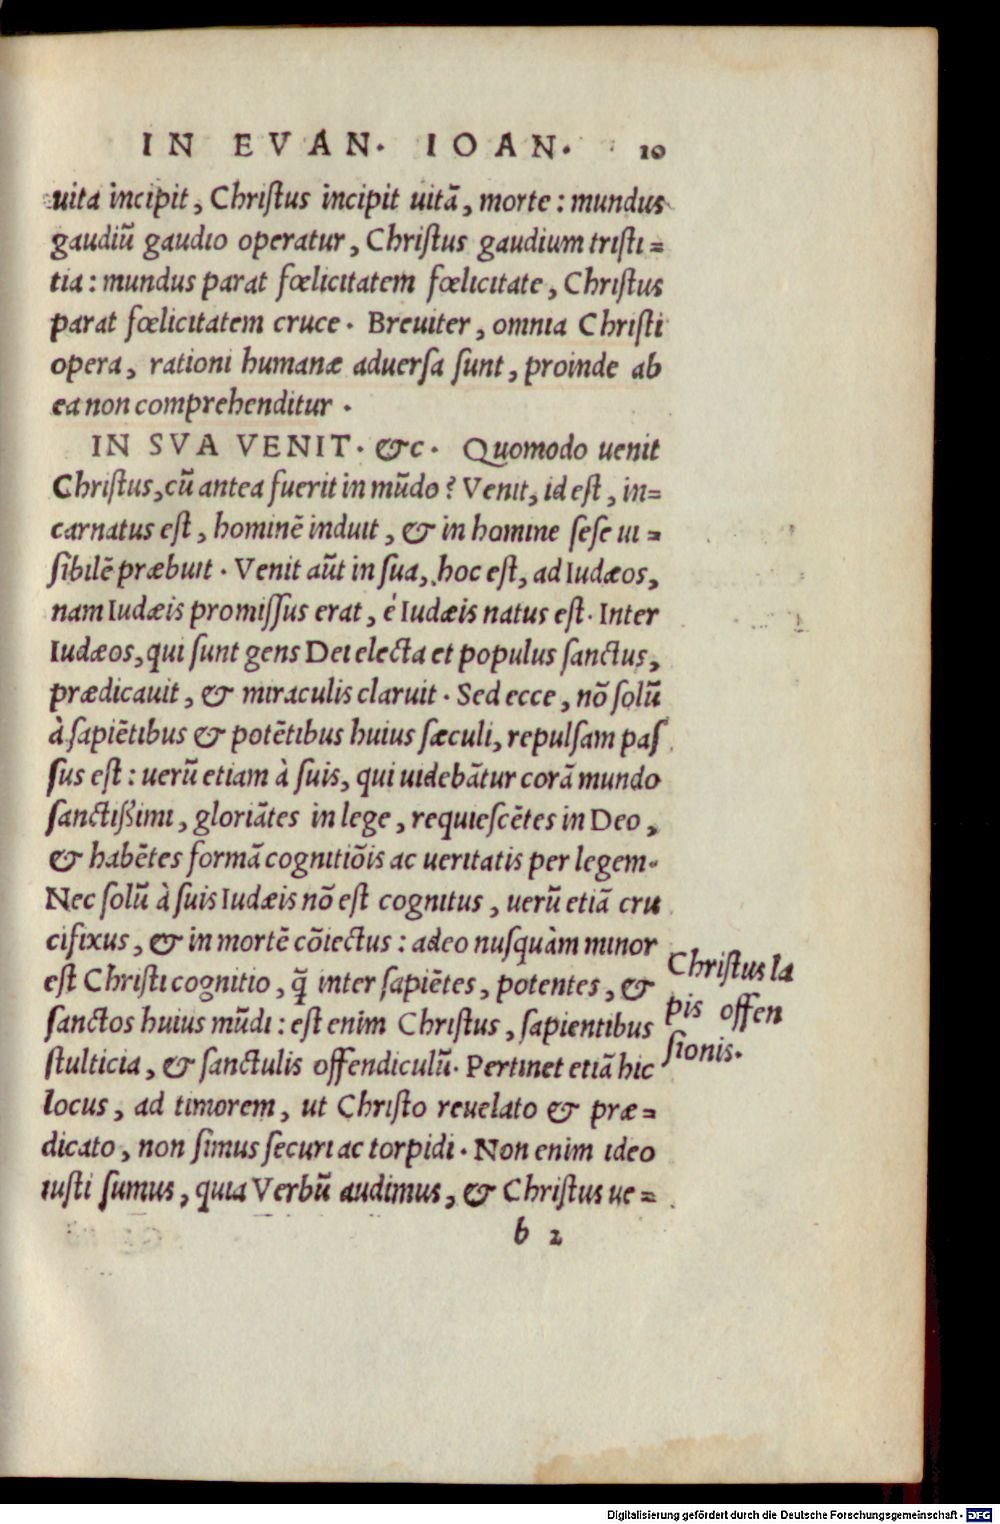 IN EVAN. IOAN. 10
uita incipit, Chriſtus incipit uitã, morte: mundus
gaudiũ gaudio operatur, Chriſtus gaudium triſti=
tia: mundus parat fœlicitatem fœlicitate, Chriſtus
parat fœlicitatem cruce. Breuiter, omnia Chriſti
opera, rationi humanæ aduerſa ſunt, proinde ab
ea non comprehenditur.
IN SVA VENIT. &c. Quomodo uenit
Chriſtus, cũ antea fuerit in mũdo? Venit, id eſt, in=
carnatus eſt, hominẽ induit, & in homine ſeſe ui=
ſibilẽ præbuit. Venit aũt in ſua, hoc eſt, ad Iudæos,
nam Iudæis promiſſus erat, é Iudæis natus eſt. Inter
Iudæos, qui ſunt gens Dei electa et populus ſanctus,
prædicauit, & miraculis claruit. Sed ecce, nõ ſolũ
à ſapiẽtibus & potẽtibus huius ſæculi, repulſam paſ
ſus eſt: uerũ etiam à ſuis, qui uidebãtur corã mundo
ſanctißimi, gloriãtes in lege, requieſcẽtes in Deo,
& habẽtes formã cognitiõis ac ueritatis per legem.
Nec ſolũ à ſuis Iudæis nõ eſt cognitus, uerũ etiã cru
cifixus, & in mortẽ cõiectus: adeo nuſquàm minor
eſt Chriſti cognitio, q̃ inter ſapiẽtes, potentes, &
ſanctos huius mũdi: eſt enim Chriſtus, ſapientibus
ſtulticia, & ſanctulis offendiculũ. Pertinet etiã hic
locus, ad timorem, ut Chriſto reuelato & præ=
dicato, non ſimus ſecuri ac torpidi. Non enim ideo
iuſti ſumus, quia Verbũ audimus, & Chriſtus ue=
b 2
Chriſtus la
pis offen
ſionis.
Digitalisierung gefördert durch die Deutsche Forschungsgemeinschaft - DFG